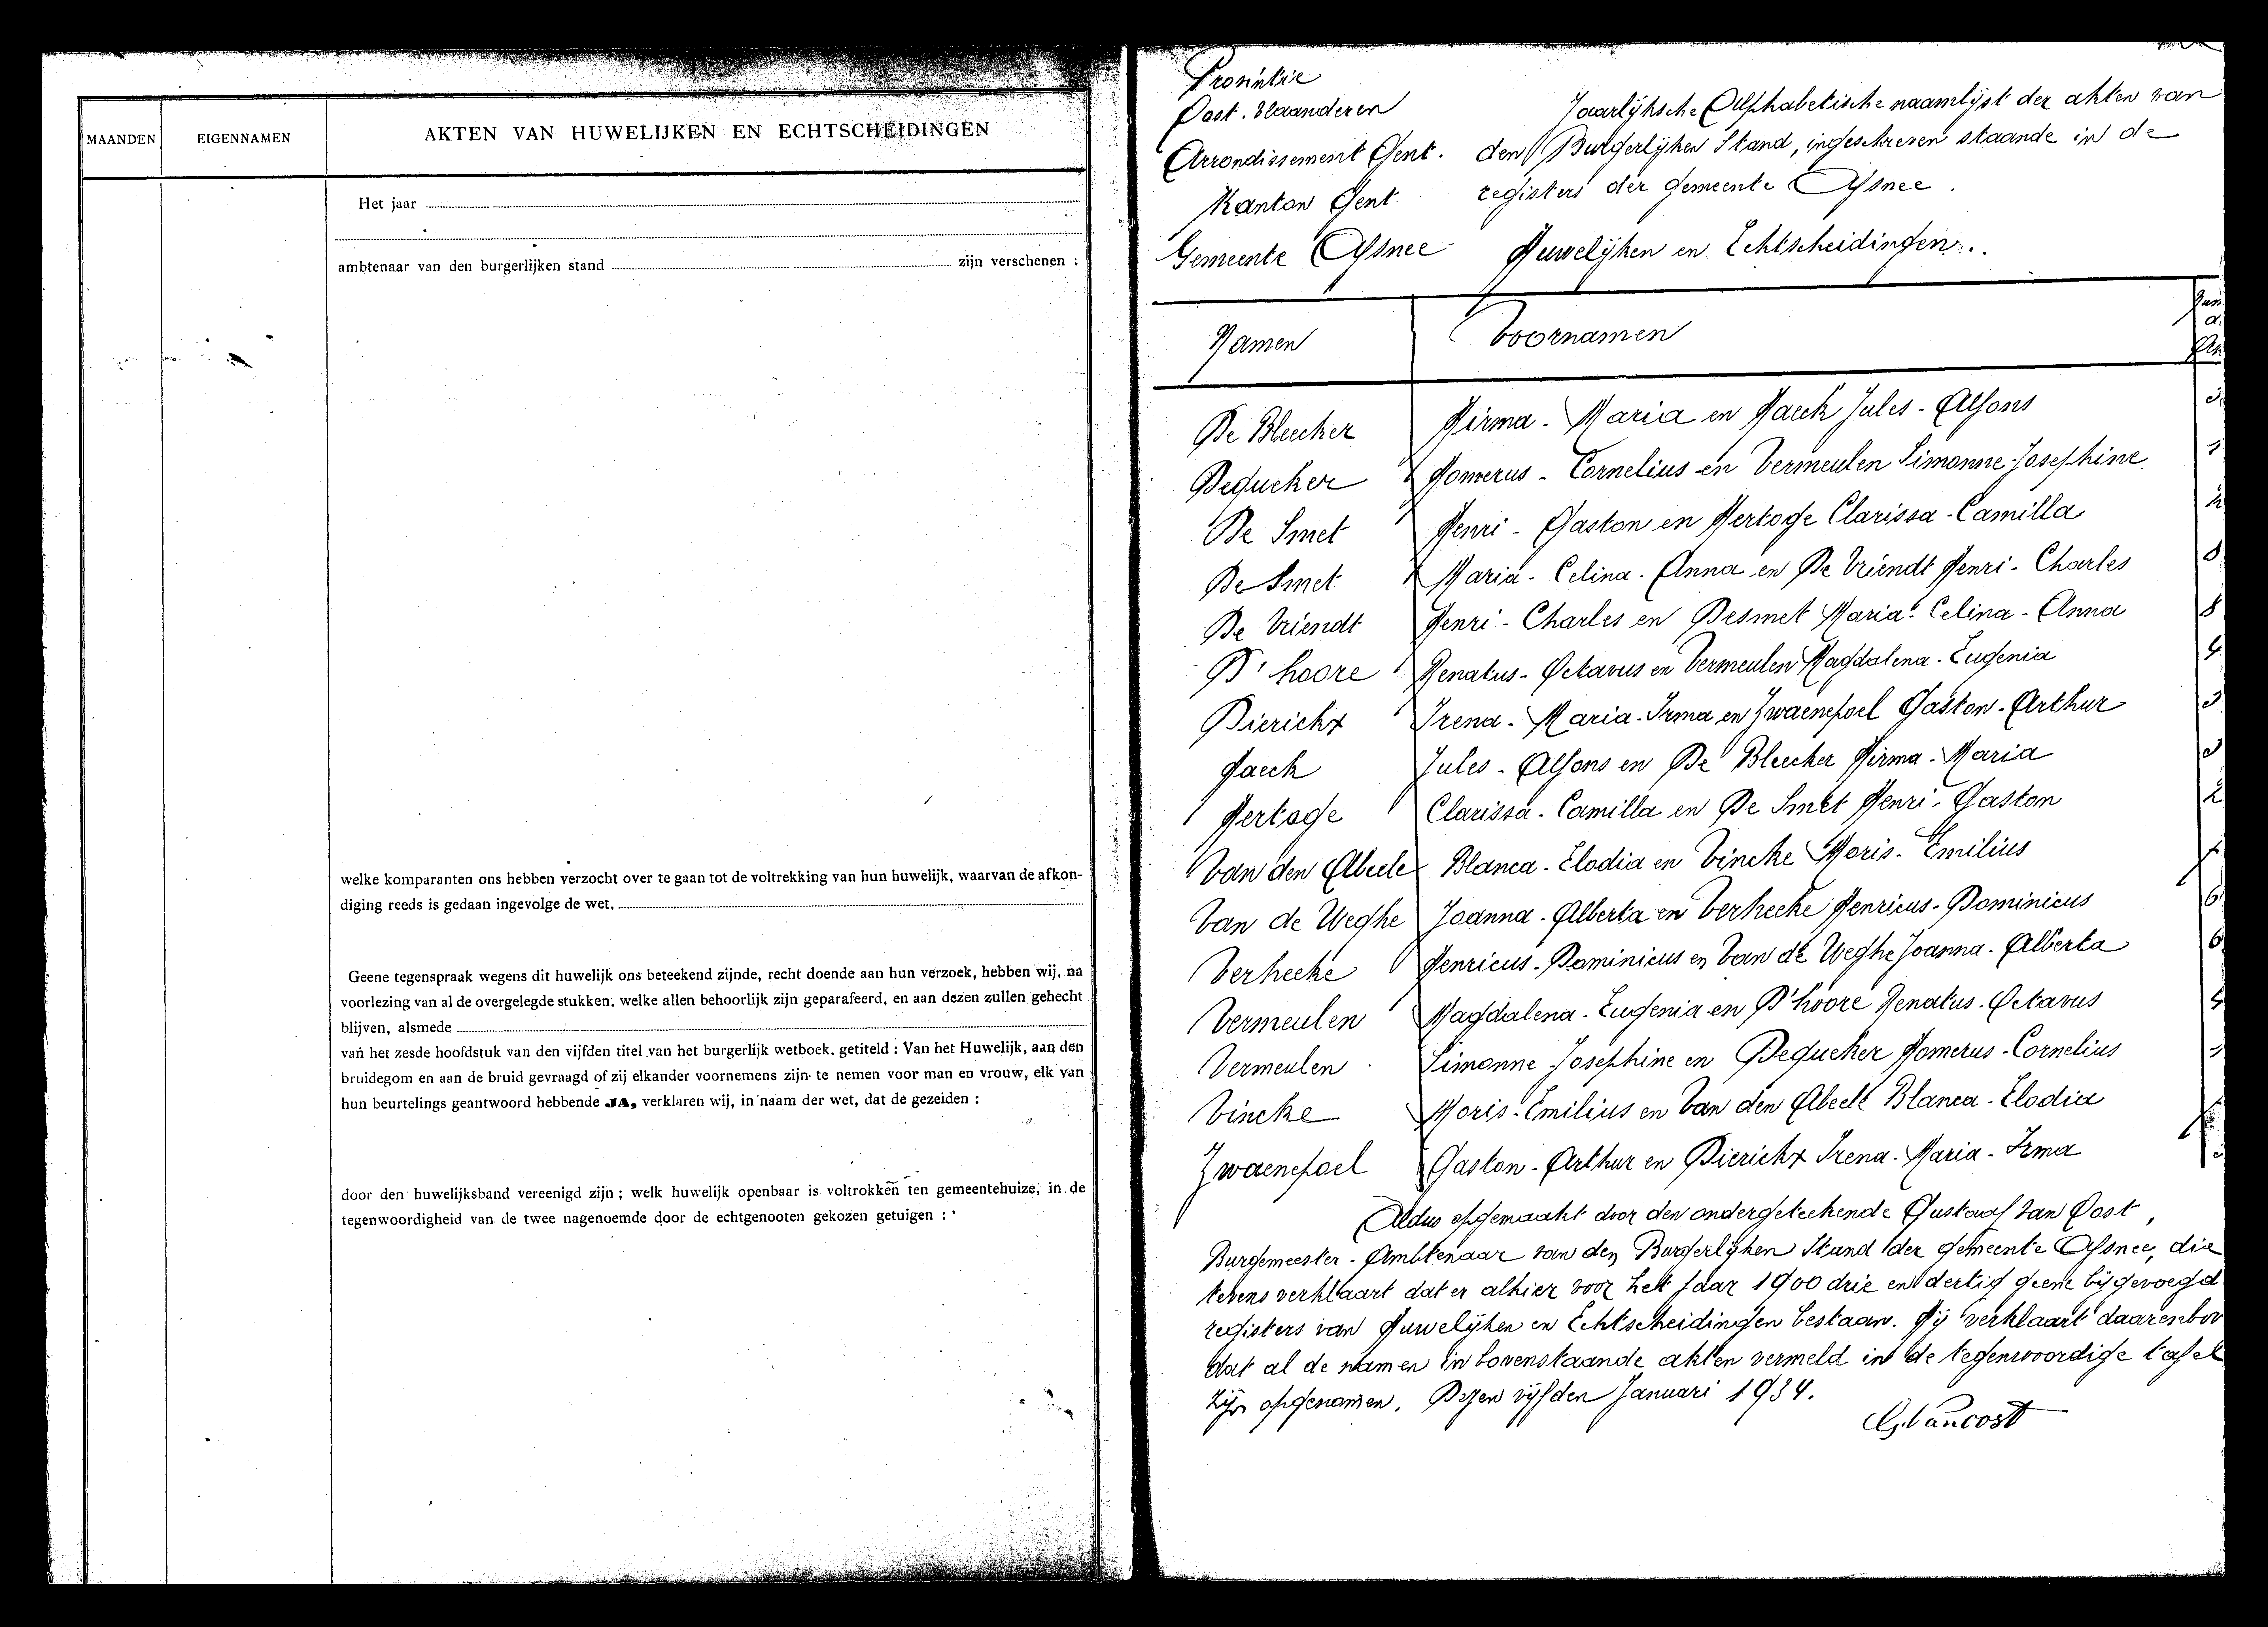 MAANDEN
EIGENNAMEN
AKTEN VAN HUWELIJKEN EN ECHTSCHEIDINGEN
Het jaar
ambtenaar van den burgerlijken stand zijn verschenen :
welke komparanten ons hebben verzocht over te gaan tot de voltrekking van hun huwelijk, waarvan de afkon-
diging reeds is gedaan ingevolge de wet.
Geene tegenspraak wegens dit huwelijk ons beteekend zijnde, recht doende aan hun verzoek, hebben wij, na
voorlezing van al de overgelegde stukken. welke allen behoorlijk zijn geparafeerd, en aan dezen zullen gehecht
blijven, alsmede
van het zesde hoofdstuk van den vijfden titel van het burgerlijk wetboek. getiteld : Van het Huwelijk, aan den
bruidegom en aan de bruid gevraagd of zij elkander voornemens zijn te nemen voor man en vrouw, elk van
hun beurtelings geantwoord hebbende JA, verklaren wij, in naam der wet, dat de gezeiden :
door den huwelijksband vereenigd zijn ; welk huwelijk openbaar is voltrokken ten gemeentehuize, in de
tegenwoordigheid van de twee nagenoemde door de echtgenooten gekozen getuigen :
Provintie
Oost. Vlaanderen
Arrondissement Gent.
Kanton Gent
Gemeente Afsnee
Jaarlijksche Alphabetische naamlijst der akten van
den Burgerlijken Stand, ingeschreven staande in de
registers der gemeente Afsnee.
Huwelijken en Echtscheidingen.
Namen Voornamen
De Bleecker Hirma - Maria en Haeck Jules - Alfons
Dequeker Homerus - Cornelius en Vermeulen Simonne-Josephine
De Smet Henri - Gaston en Hertoge Clarissa - Camilla 2
De Smet Maria - Celina - Anna en De Vriendt Henri - Charles 8
De Vriendt Henri - Charles en Desmet Maria - Celina - Anna 8
D'hoore Renatus - Octavus en Vermeulen Magdalena - Eugenia 4
Dierickx Irena - Maria - Irma en Zwaenepoel Gaston - Arthur
Haeck Jules - Alfons en De Bleecker Hirma - Maria
Hertoge Clarissa - Camilla en De Smet Henri - Gaston 2
Van den Abeele Blanca - Elodia en Vincke Moris - Emilius
Van de Weghe Joanna - Alberta en Verhecke Henricus - Dominicus 6
Verhecke Henricus - Dominicus en Van de Weghe Joanna - Alberta 6
Vermeulen Magdalena - Eugenia en D'hoore Renatus - Octavus 4
Vermeulen Simonne Josephine en Dequeker Homerus - Cornelius
Vincke Moris - Emilius en Van den Abeele Blanca - Elodia
Zwaenepoel Gaston - Arthur en Dierickx Irena - Maria - Irma
Aldus opgemaakt door den ondergeteekende Gustaaf Van Oost,
Burgemeester - Ambtenaar van den Burgerlijken Stand der gemeente Afsnee, die
tevens verklaart dat er alhier voor het jaar 1900 drie en dertig geene bijgevoegd
registers van Huwelijken en Echtscheidingen bestaan. Hij verklaart daarenbov
dat al de namen in bovenstaande akten vermeld in de tegenwoordige tafel
zijn opgenomen. Dezen vijfden Januari 1934.
G. Vanoost